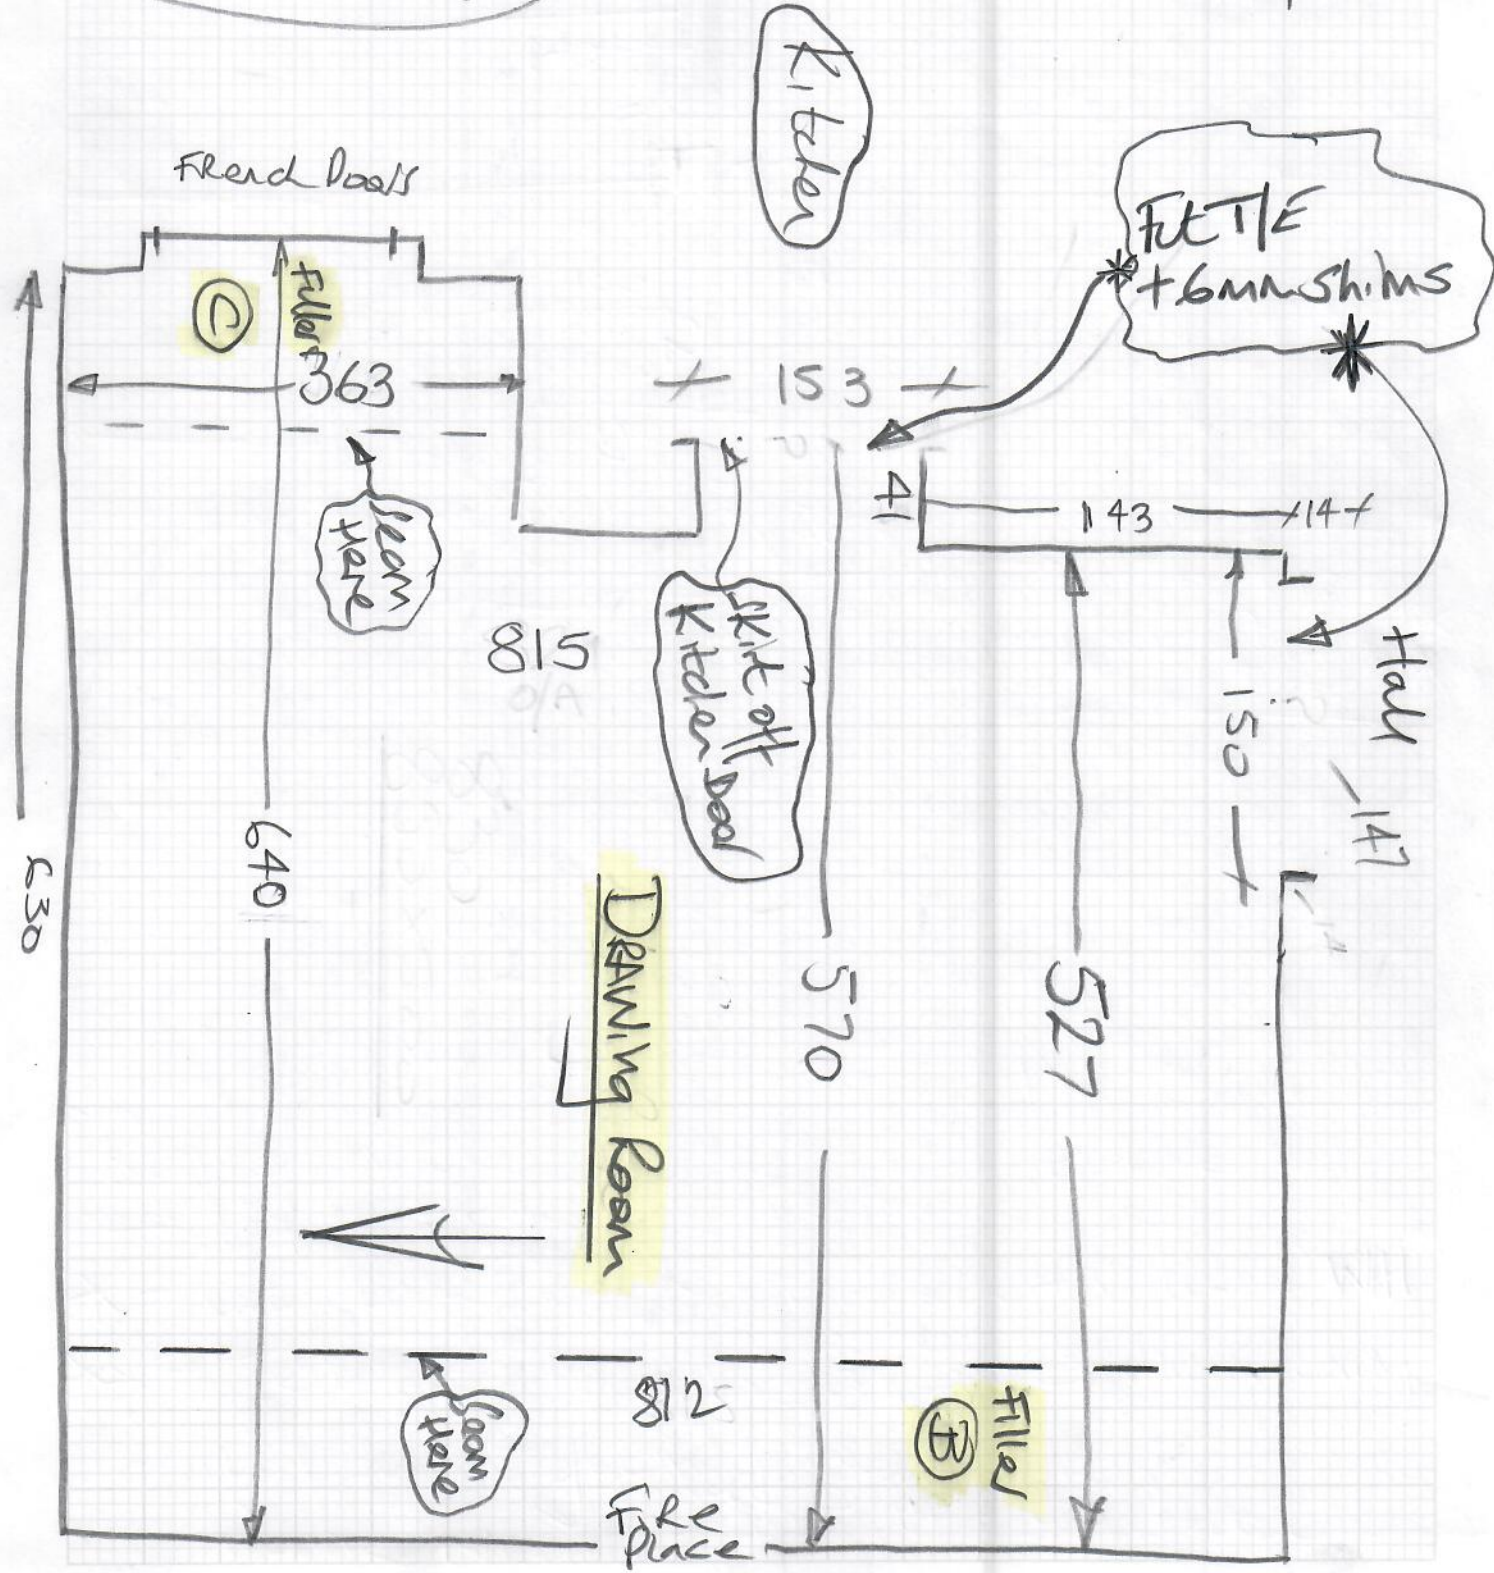 Kitchen
French Doors
Fit T/E
+ 6mm shims
C
Filler
363
153
41
143
14
Seam
Here
815
A/O
Skirt off
Kitchen Door
Hall
150
147
640
630
Drawing Room
570
527
812
Seam
Here
Filler
B
Fire
Place